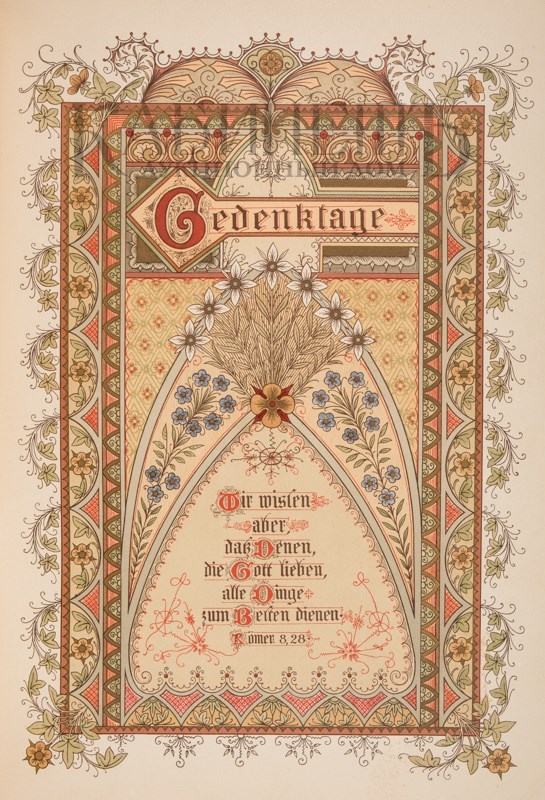 Gedenktage
Wir wissen
aber,
daß Denen,
die Gott lieben,
alle Dinge
zum Besten dienen.
Römer 8,28